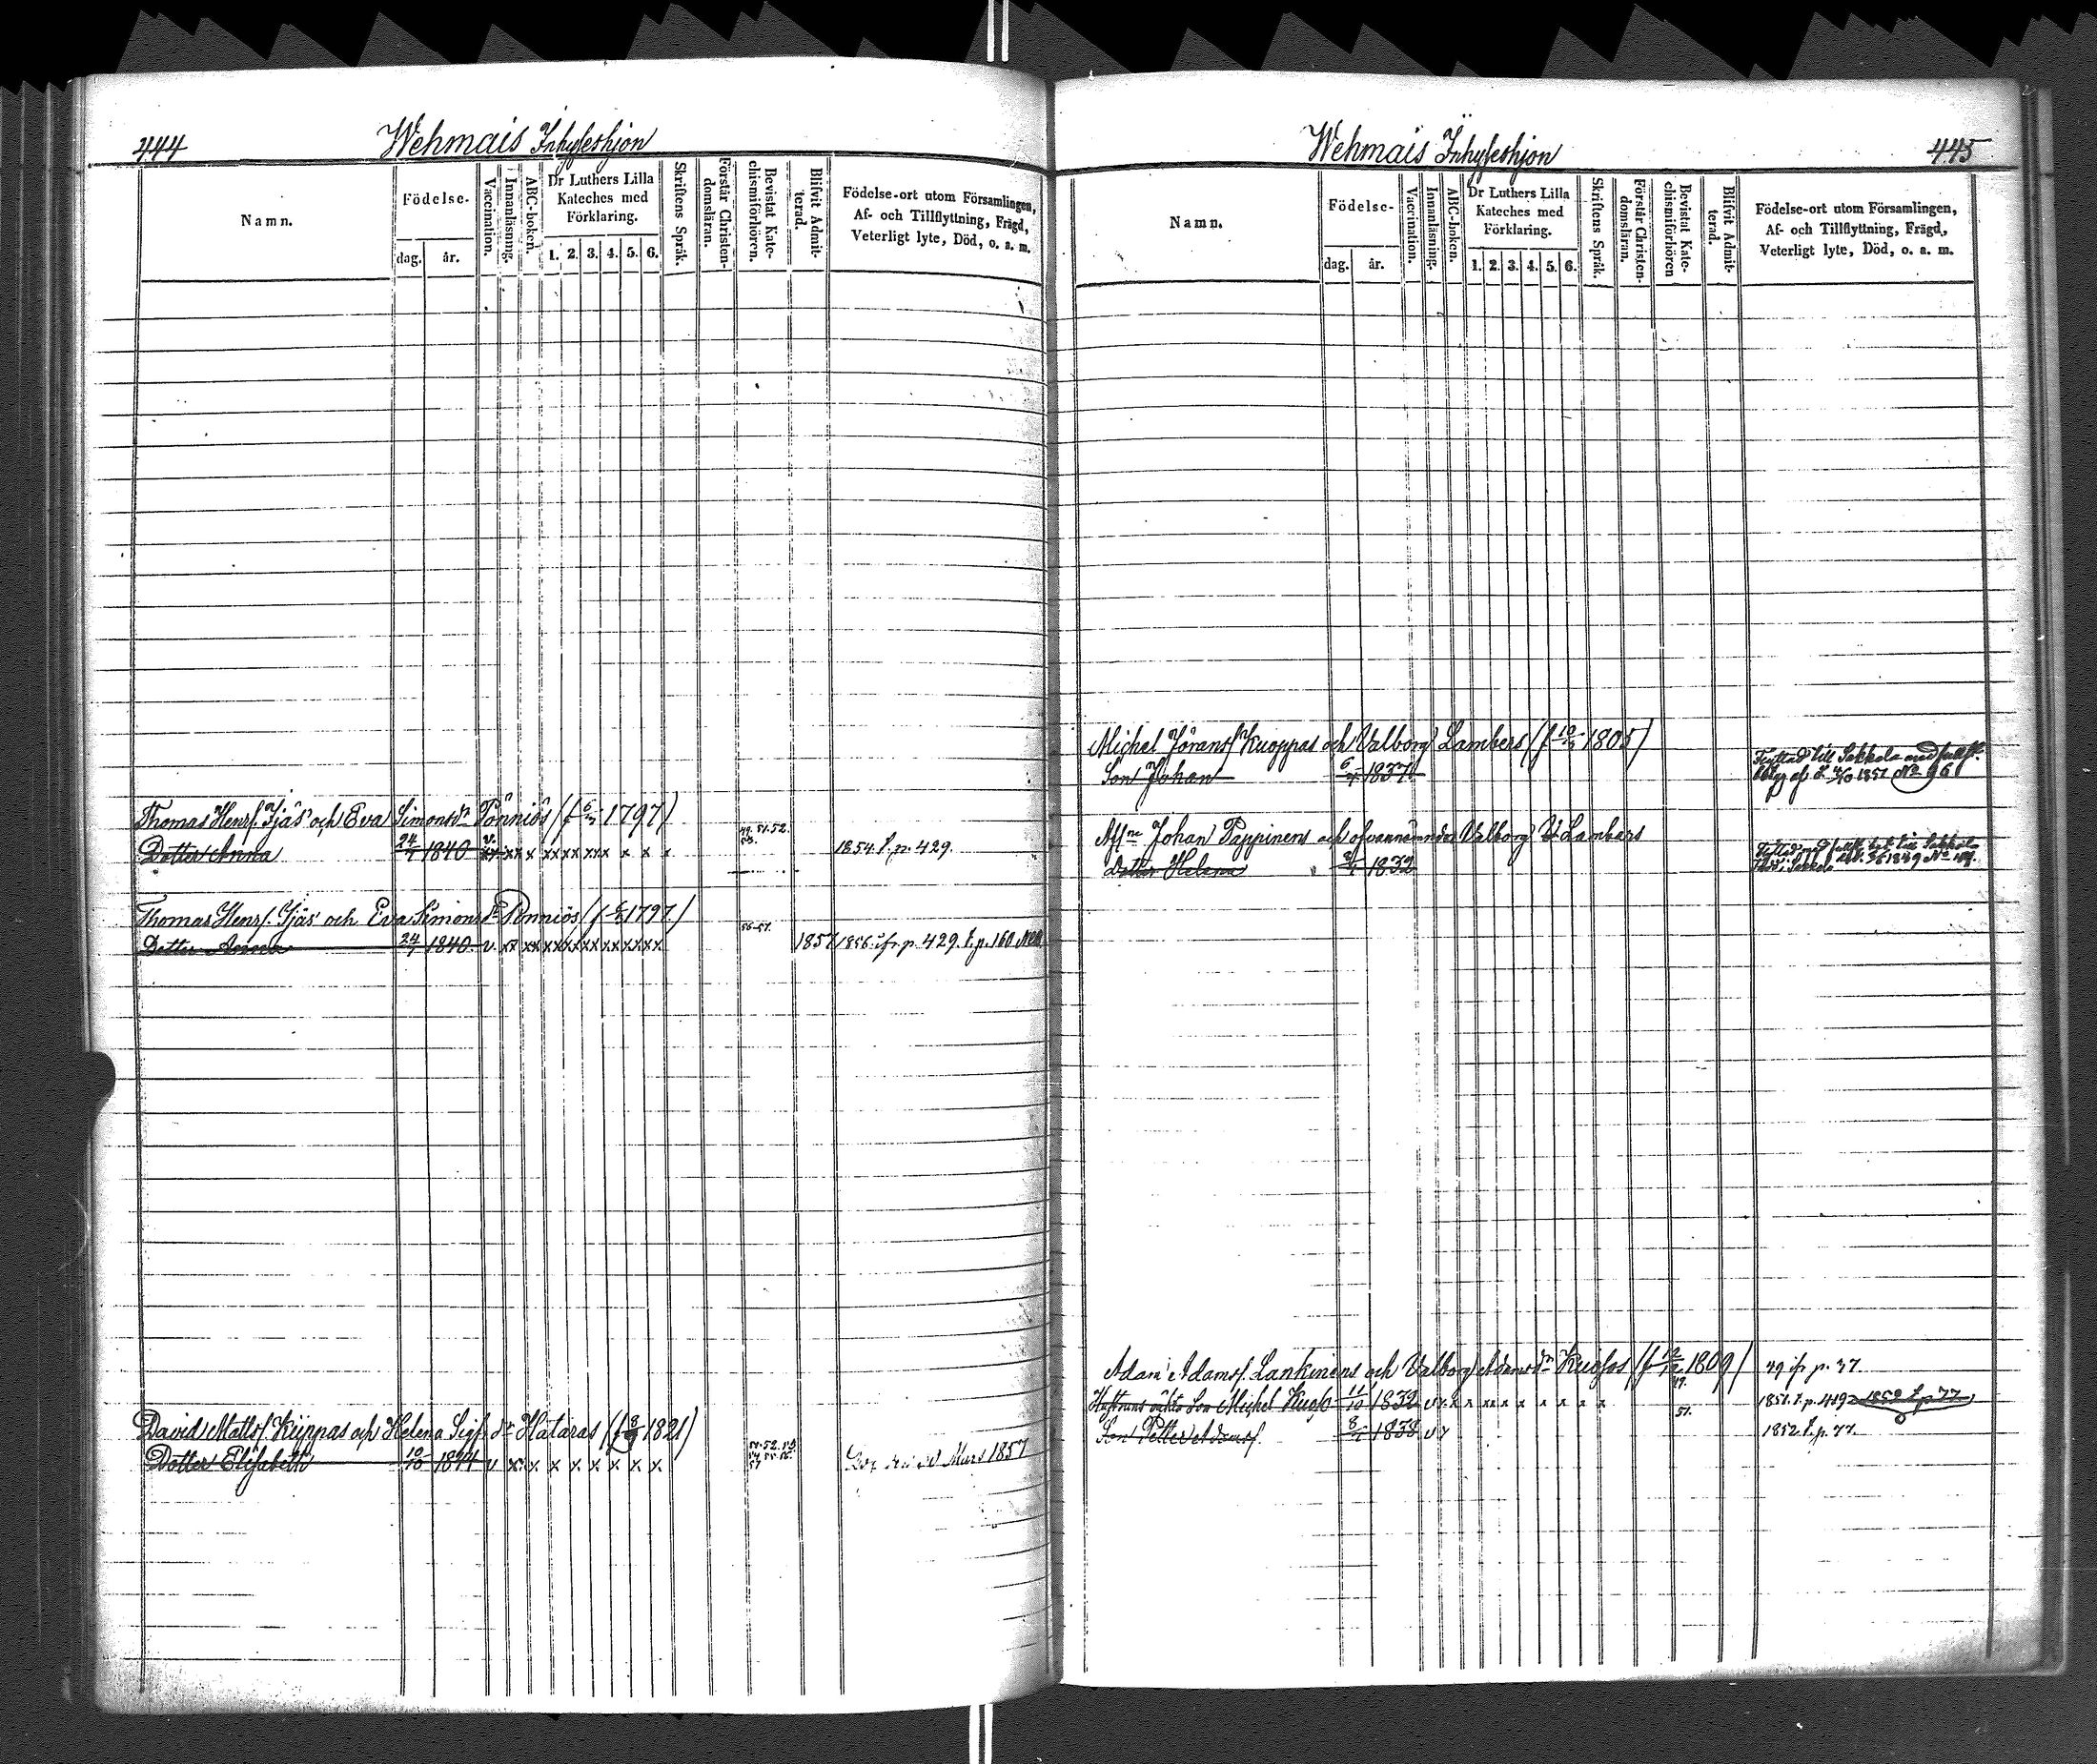 444
Wehmais Inhyseshjon
Namn.
Födelse-
dag.
år.
Vaccination.
Innanläsning.
ABC-boken.
Dr Luthers Lilla
Kateches med
Förklaring.
1. 2. 3. 4. 5. 6.
Skriftens Språk.
Förstår Christen-
domsläran.
Bevistat Kate-
chismiförhören.
Blifvit Admit-
terad.
Födelse-ort utom Församlingen,
Af- och Tillflyttning, Frägd,
Veterligt lyte, Död, o. a. m.
Thomas Henrs. Ijäs och Eva Simonsdr Pönniös (f 1797)
Dotter Anna 24 1840 v. xx xx x xx xx xxx x x x 49. 51. 52. 53. 1854. t. p. 429.
Thomas Henrs. Ijäs och Eva Simons dr Pönniös (f 1797)
Dotter Anna 24 1840. v xx xx xx xx xx xx xx xx 56-57. 1857 1856. ifr. p. 429. t. p. 160
David Matts. Kiippas och Helena Sigf. dr Hataras (f 8 1821)
Dotter Elisabeth 10/10 1844 v x x x x x x x x 51. 52. 53. 54. 55. 56. 57 Mars 1857
Wehmais Inhyseshjon
445
Namn.
Födelse-
dag.
år.
Vaccination.
Innanläsning.
ABC-boken.
Dr Luthers Lilla
Kateches med
Förklaring.
1. 2. 3. 4. 5. 6.
Skriftens Språk.
Förstår Christen-
domsläran.
Bevistat Kate-
chismiförhören
Blifvit Admit-
terad.
Födelse-ort utom Församlingen,
Af- och Tillflyttning, Frägd,
Veterligt lyte, Död, o. a. m.
Michel Jörans. Kuoppas och Valborg Lambers (f 10 1805)
Son Johan 6 1837 Flyttad till Sakkola med
1851 No 96
Aff ne Johan Pappinens och ofvannämnda Valborg Lambers
Dotter Helena 1832 Flyttad till Sakkola
1849 No
Adam Adamss. Lankinens och Valborg Adamsdr Kuosas (f 12 1809) 49 ifr p. 37.
Son Michel 11/10 1832 v x x x xx x x x x x x 49. 51. 1851. t. p. 449 1852 t. p. 77
Son Petter Adamss. 8 1838 v x 1852 t. p. 77.